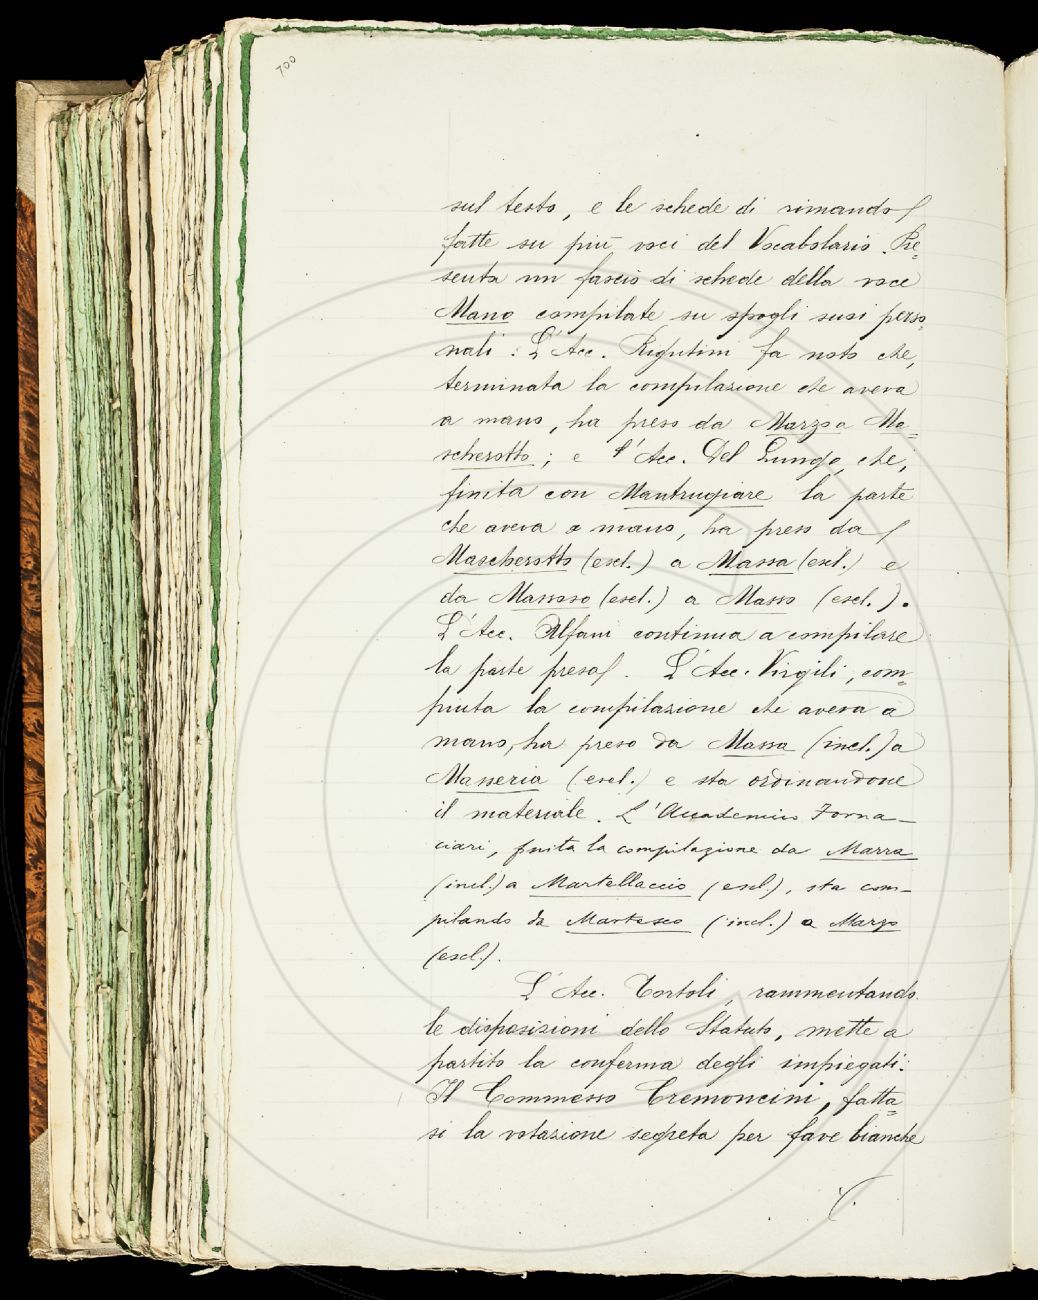 700
sul testo, e le schede di rimando
fatte su più voci del Vocabolario. Pre=
senta un fascio di schede della voce
Mano compilate su spogli suoi perso=
nali: L'Acc. Rigutini fa noto che,
terminata la compilazione che aveva
a mano, ha preso da Marzo a Ma=
scherotto; e l'Acc. Del Lungo, che,
finita con Mantrugiare la parte
che aveva a mano, ha preso da
Mascherotto (escl.) a Massa (escl.) e
da Massoso (escl.) a Masso (escl.).
L'Acc. Alfani continua a compilare
la parte presa. L'Acc. Virgili, com=
piuta la compilazione che aveva a
mano, ha preso da Massa (incl.) a
Masseria (escl.) e sta ordinandone
il materiale. L'Accademico Forna-
ciari, finita la compilazione da Marra
(incl.) a Martellaccio (escl.), sta com-
pilando da Martesco (incl.) a Marzo
(escl.).
L'Acc. Tortoli, rammentando
le disposizioni dello Statuto, mette a
partito la conferma degli impiegati.
Il Commesso Cremoncini, fatta=
si la votazione segreta per fave bianche